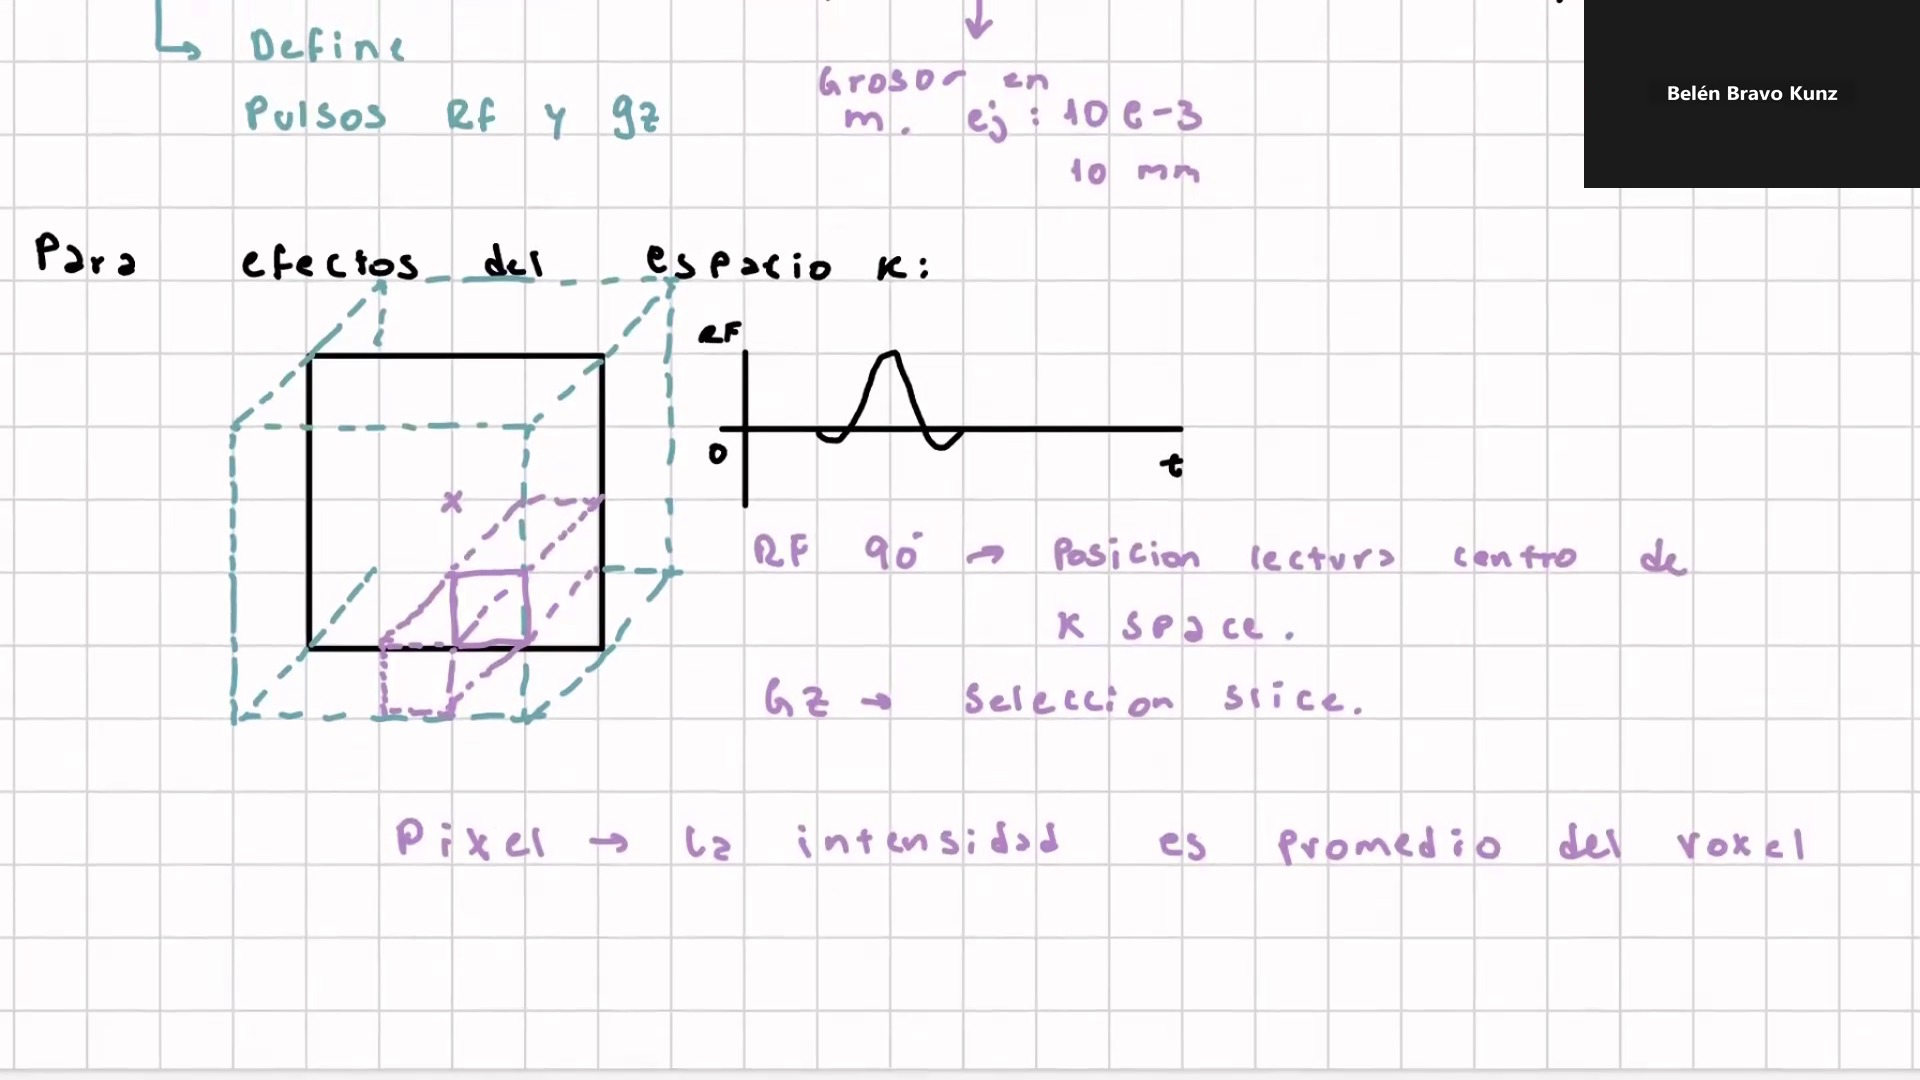 Define
Pulsos Rf y gz
Grosor en
m. ej: 10 e-3
10 mm
Belén Bravo Kunz
Para efectos del espacio k:
RF
0
t
x
RF 90° → Posicion lectura centro de
K space.
Gz → Seleccion slice.
Pixel → la intensidad es promedio del voxel